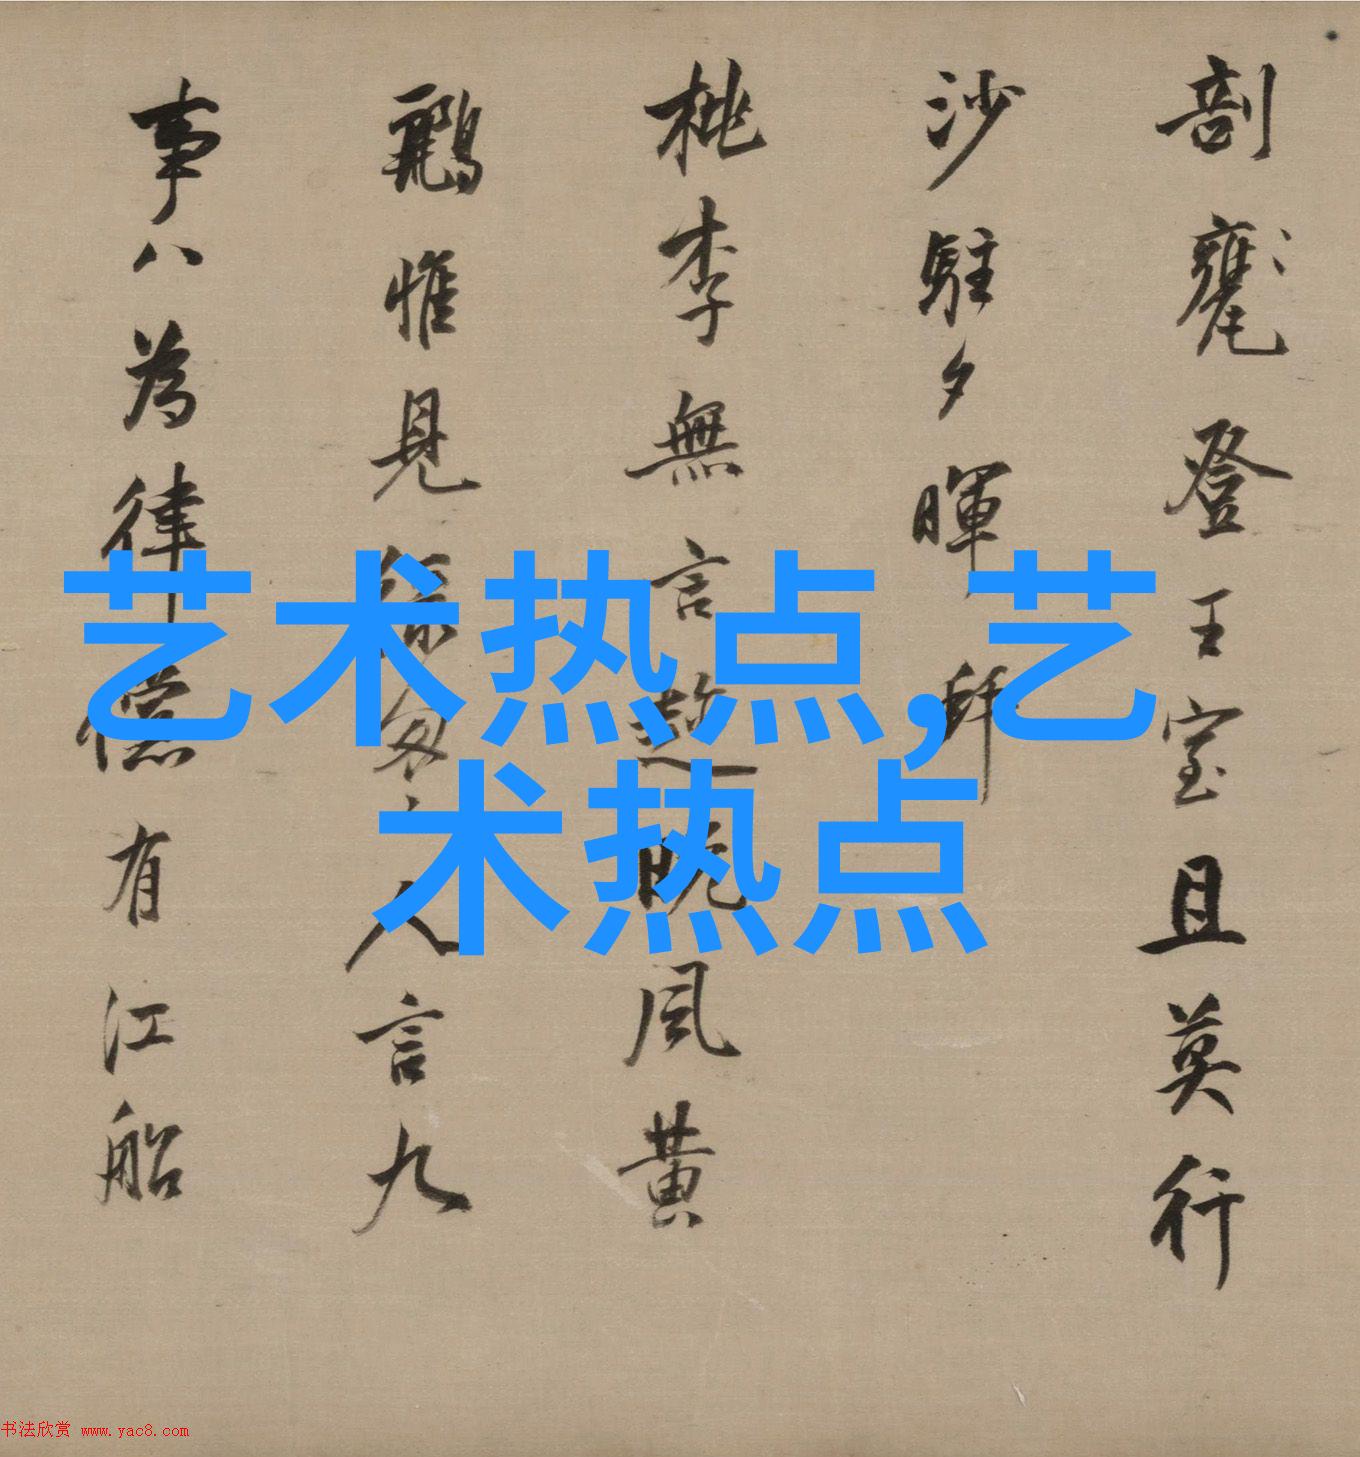 剖甕登王室且莫行
沙駐夕暉
桃李無言趂晚風黄
鸝惟見人言九
事八為律有江船
艺术热点,艺
术热点
书法欣赏 www.yac8.com